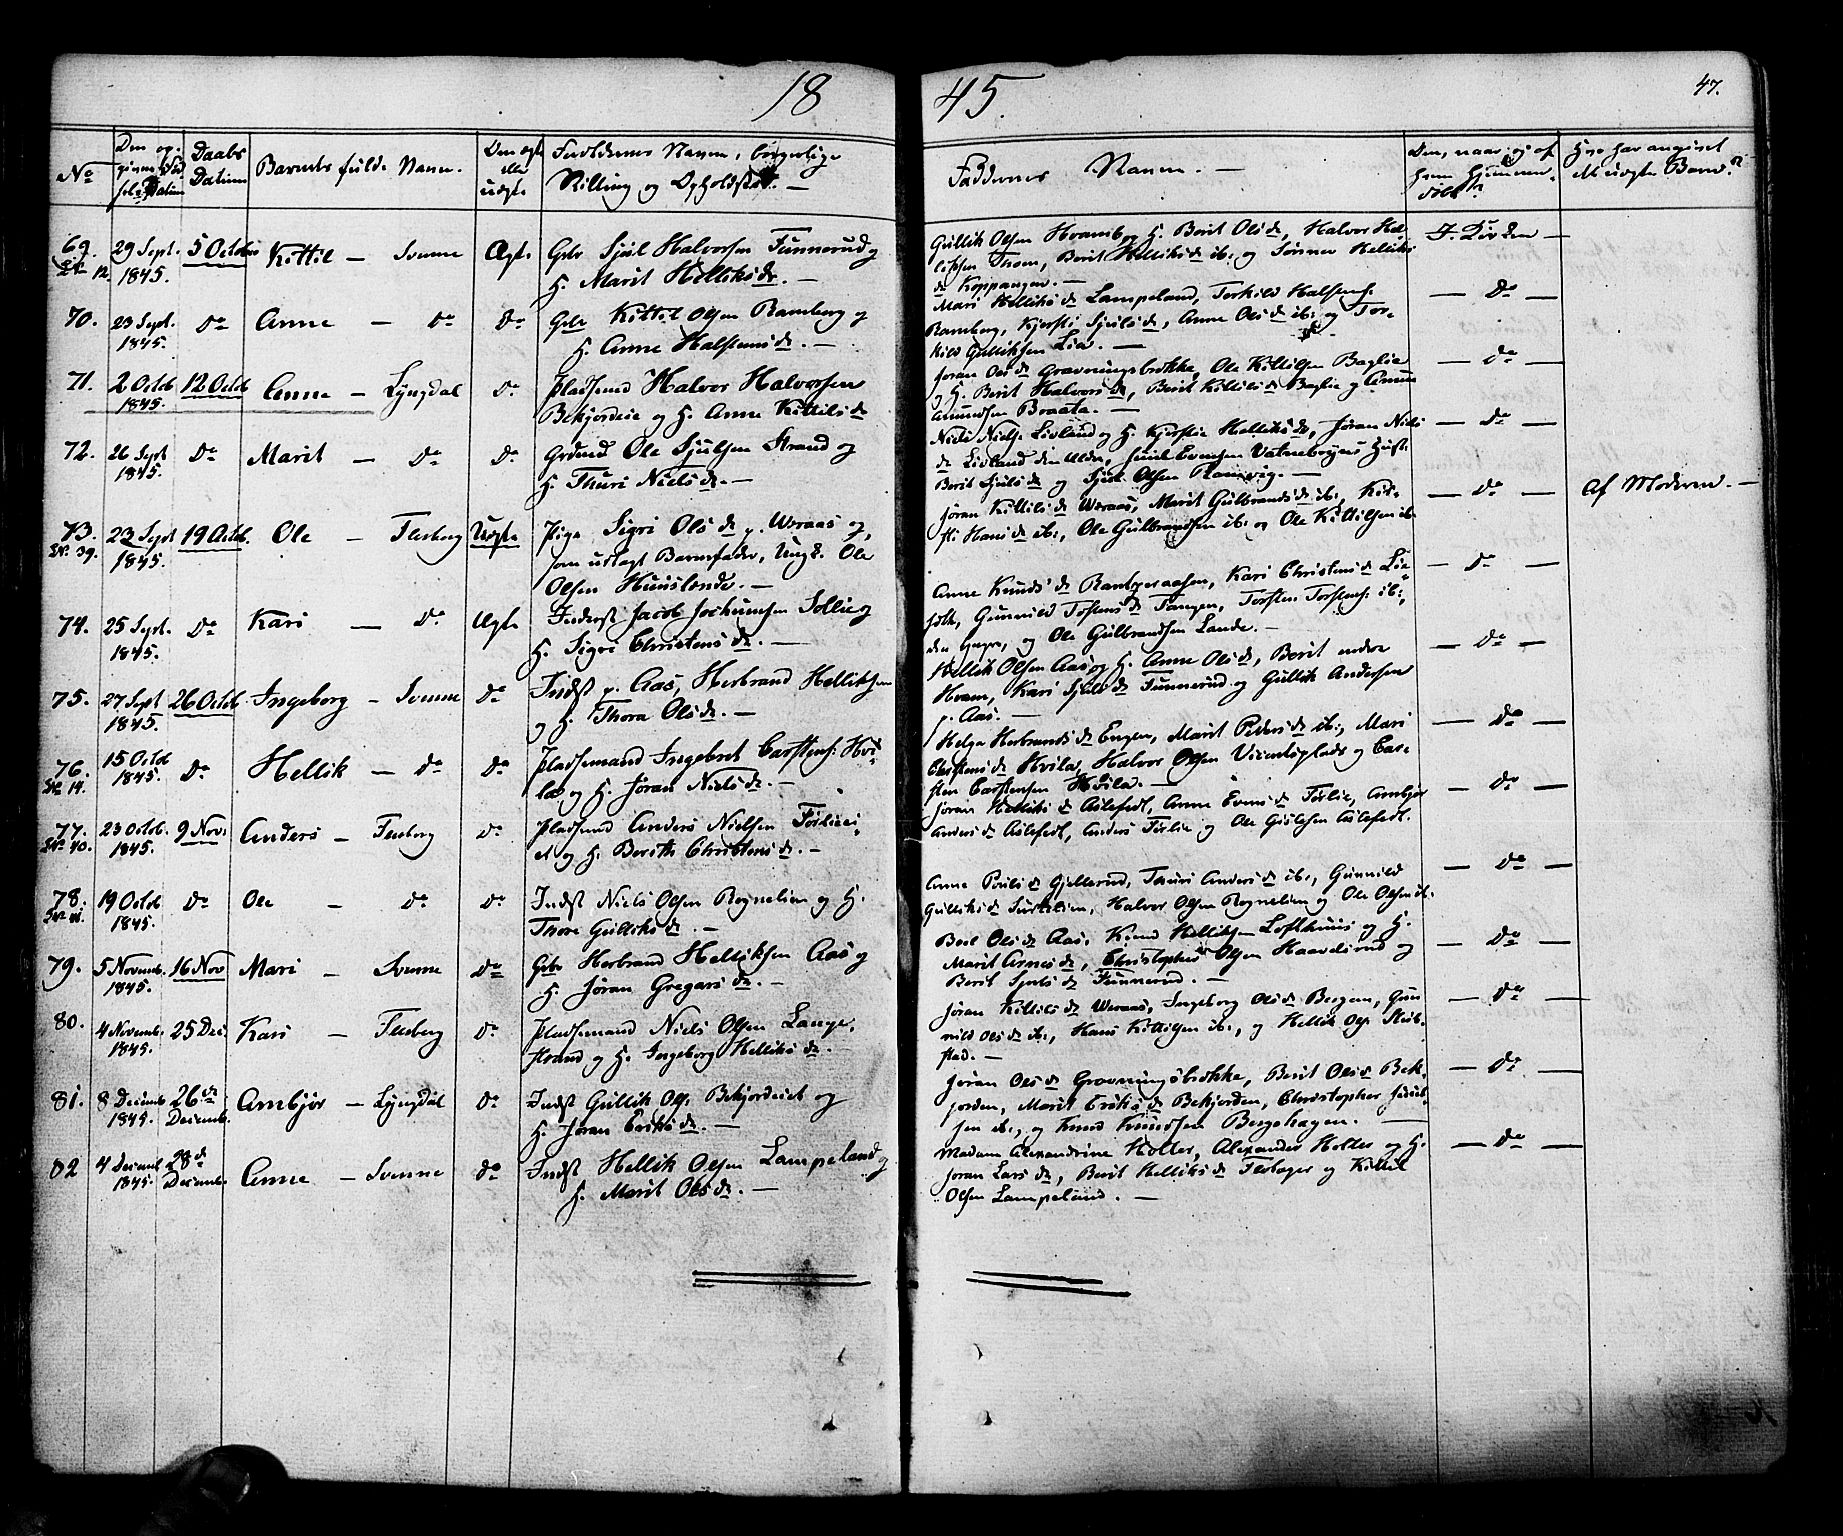 18 45.
47.
No
Den op-
Daabs
Datum
Barnets fulde Navn.
Den ægte
eller
uægte
Forældrenes Navne, borgerlige
Stilling og Opholdsted. —
Faddernes Navne. —
Hvo har angivet
det uægte Barn?
69. 29 Sept. 1845. 5 Octob Kittil — Svenne Ægte
Gbr Sjul Halvorsen Funnerud og
H. Marit Helliksdr. —
Gullik Olsen Hvamb og H. Berit Olsdr, Halvor Hel-
liksen Thom, Berit Helliksdr ib: og Sønnev Helliks
dr Koppangen. —
70. 23 Sept. 1845. Do Anne — Do Do
Gbr Kittil Olsen Ramberg og
H. Anne Halstensdr. —
Mari Helliksdr Lampeland, Torkild Halstens:
Ramberg, Kjersti Sjulsdr, Anne Olsdr ib: og Tor-
kild Gulliksen Lia. —
— Do —
71. 2 Octob 1845. 12 Octob Anne — Lyngdal Do
Pladsmd Halvor Halvorsen
Bekjordeie og H. Anne Kittilsdr
Jøran Olsdr Gravningsbrekke, Ole Kittilsen Baglia
og H. Berit Halvorsdr, Berit Kittilsdr Baglie og Amun
Amundsen Braata. —
— Do —
72. 26 Sept 1845. Do Marit — Do Do
Grdmd Ole Sjulsen Strand og
H. Thuri Nielsdr. —
Niels Niels: Livland og H. Kjerstie Helliksdr, Jøran Niels
dr Livland
Berit Sjulsdr og Sjul Olsen Ramvig. —
— Do —
73. No. 39. 23 Sept 1845. 19 Octob. Ole — Flesberg Uægte
Pige Sigri Olsdr p. Weraas og,
som udlagt Barnefader, Ungk. Ole
Olsen Huuslende. —
Jøran Kittilsdr Weraas, Marit Gulbrandsdr ib:, Kit-
til Hans dr ib:, Ole Gulbrandsen ib: og Ole Kittilsen ib.
— Do — Af Moderen. —
74. 25 Sept. 1845. Do Kari — Do Ægte
Inderst Jacob Jochumsen Sollie og
H. Sigri Christensdr. —
Anne Knudsdr Kari Christensdr Lia-
Gunnild Tostensdr Tangen, Torsten Torstens: ib:,
den yngre, og Ole Gulbrandsen Lande. —
— Do —
75. 27 Sept 1845. 26 Octob. Ingeborg — Svenne Do
Indst p. Aas, Herbrand Helliksen
og H. Thora Olsdr. —
Hellik Olsen Aas og H. Anne Olsdr, Berit
Hvam, Kari Sjulsdr Funnerud og Gullik Andersen
p. Aas. —
— Do —
76. 15 Octob 1845. Do Hellik — Do Do
Pladsemand Ingebret Carstens: Hvi-
la og H. Jøran Nielsdr. —
Helga Herbrandsdr Engen, Marit Pedersdr ib:, Mari
Christensdr Hvila, Halvor Olsen og Car-
sten Carstensen Hvila. —
— Do —
77. No. 40. 23 Octob. 1845. 9 Nov: Anders — Flesberg Do
Pladsmd Anders Nielsen Førliei
et og H. Berith Christensdr. —
Jøran Helliksdr Aslefedt, Anne Evensdr Førlie, Ambjør
Andersdr Aslefedt, Anders Førlie og Ole Gislesen Aslefedt.
— Do —
78. 19 Octob 1845. Do Ole — Do Do
Indst Niels Olsen Rognelien og H.
Thore Gulliksdr. —
Anne Poulsdr Gjellerud, Thuri Andersdr ib:, Gunnild
Gulliksdr Halvor Olsen Rognelien og Ole Olsen ib.
— Do —
79. 5 Novemb. 1845. 16 Nov Mari — Svenne Do
Gbr Herbrand Helliksen Aas og
H. Jøran Gregarsdr. —
Boel Olsdr Aas, Knud Helliksen Lofthuus og H.
Marit Arnesdr, Christopher Olsen Haavelsrud og
Berit Sjulsdr Funnerud. —
— Do —
80. 4 Novemb. 1845. 25 Dec Kari — Flesberg Do
Pladsemand Niels Olsen Lange-
strand og H. Ingeborg Helliksdr. —
Jøran Kittilsdr Weraas, Ingeborg Olsdr Bergem, Gun-
nild Olsdr ib:, Hans Kittilsen ib:, og Hellik Ols:
stad. —
— Do —
81. 8 Decemb 1845. 26de Decemb. Ambjør — Lyngdal Do
Indst Gullik Ols: Bekjordeiet og
H. Jøran Eriksdr. —
Jøran Olsdr Gravningsbrekke, Berit Olsdr Bek-
jorden, Marit Eriksdr Bekjorden, Christopher
sen ib:, og Knud Knudsen Bergehagen. —
— Do —
82 4 Decemb 1845. 28de Decemb. Anne — Svenne Do
Indst Hellik Olsen Lampeland og
H. Marit Olsdr. —
Madam Alexandrine Holter, Alexander Holter og H.
Jøran Larsdr, Berit Helliksdr og Kittil
Olsen Lampeland. —
— Do —